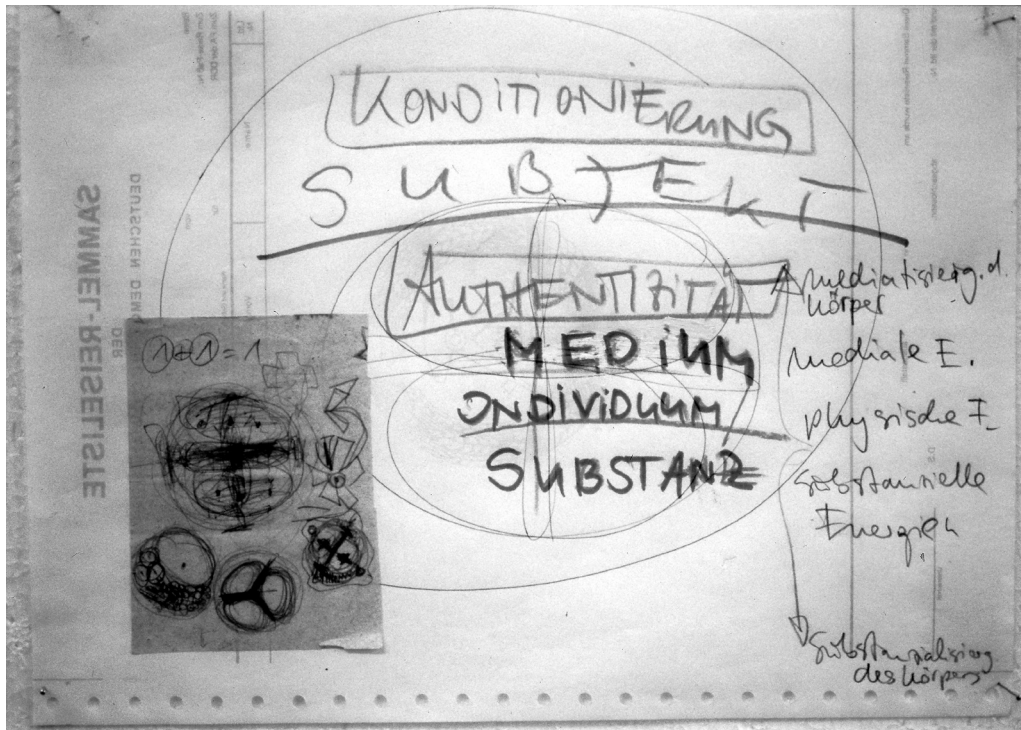 KONDITIONIERUNG
SUBJEKT
AUTHENTIZITÄT
MEDIUM
INDIVIDUUM
SUBSTANZ
mediatisierg. d.
körper
mediale E.
physische E.
substanzielle
Energien
substanzialisierg
des körpers
1+1=1
SAMMEL-EISELISTE
DER
DEUTSCHEN DEMO